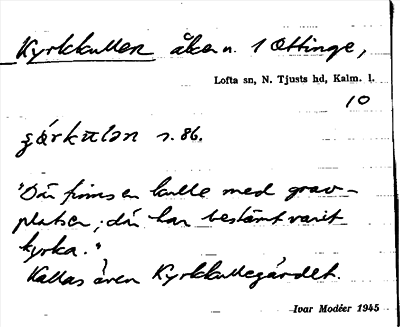 Kyrkkullen åker n. 1 Ottinge,
Lofta sn, N. Tjusts hd, Kalm. l.
10
s. 86.
"Där finns en kulle med grav-
platser; där har bestämt varit
kyrka."
Kallas även Kyrkkullegärdet.
Ivar Modéer 1945